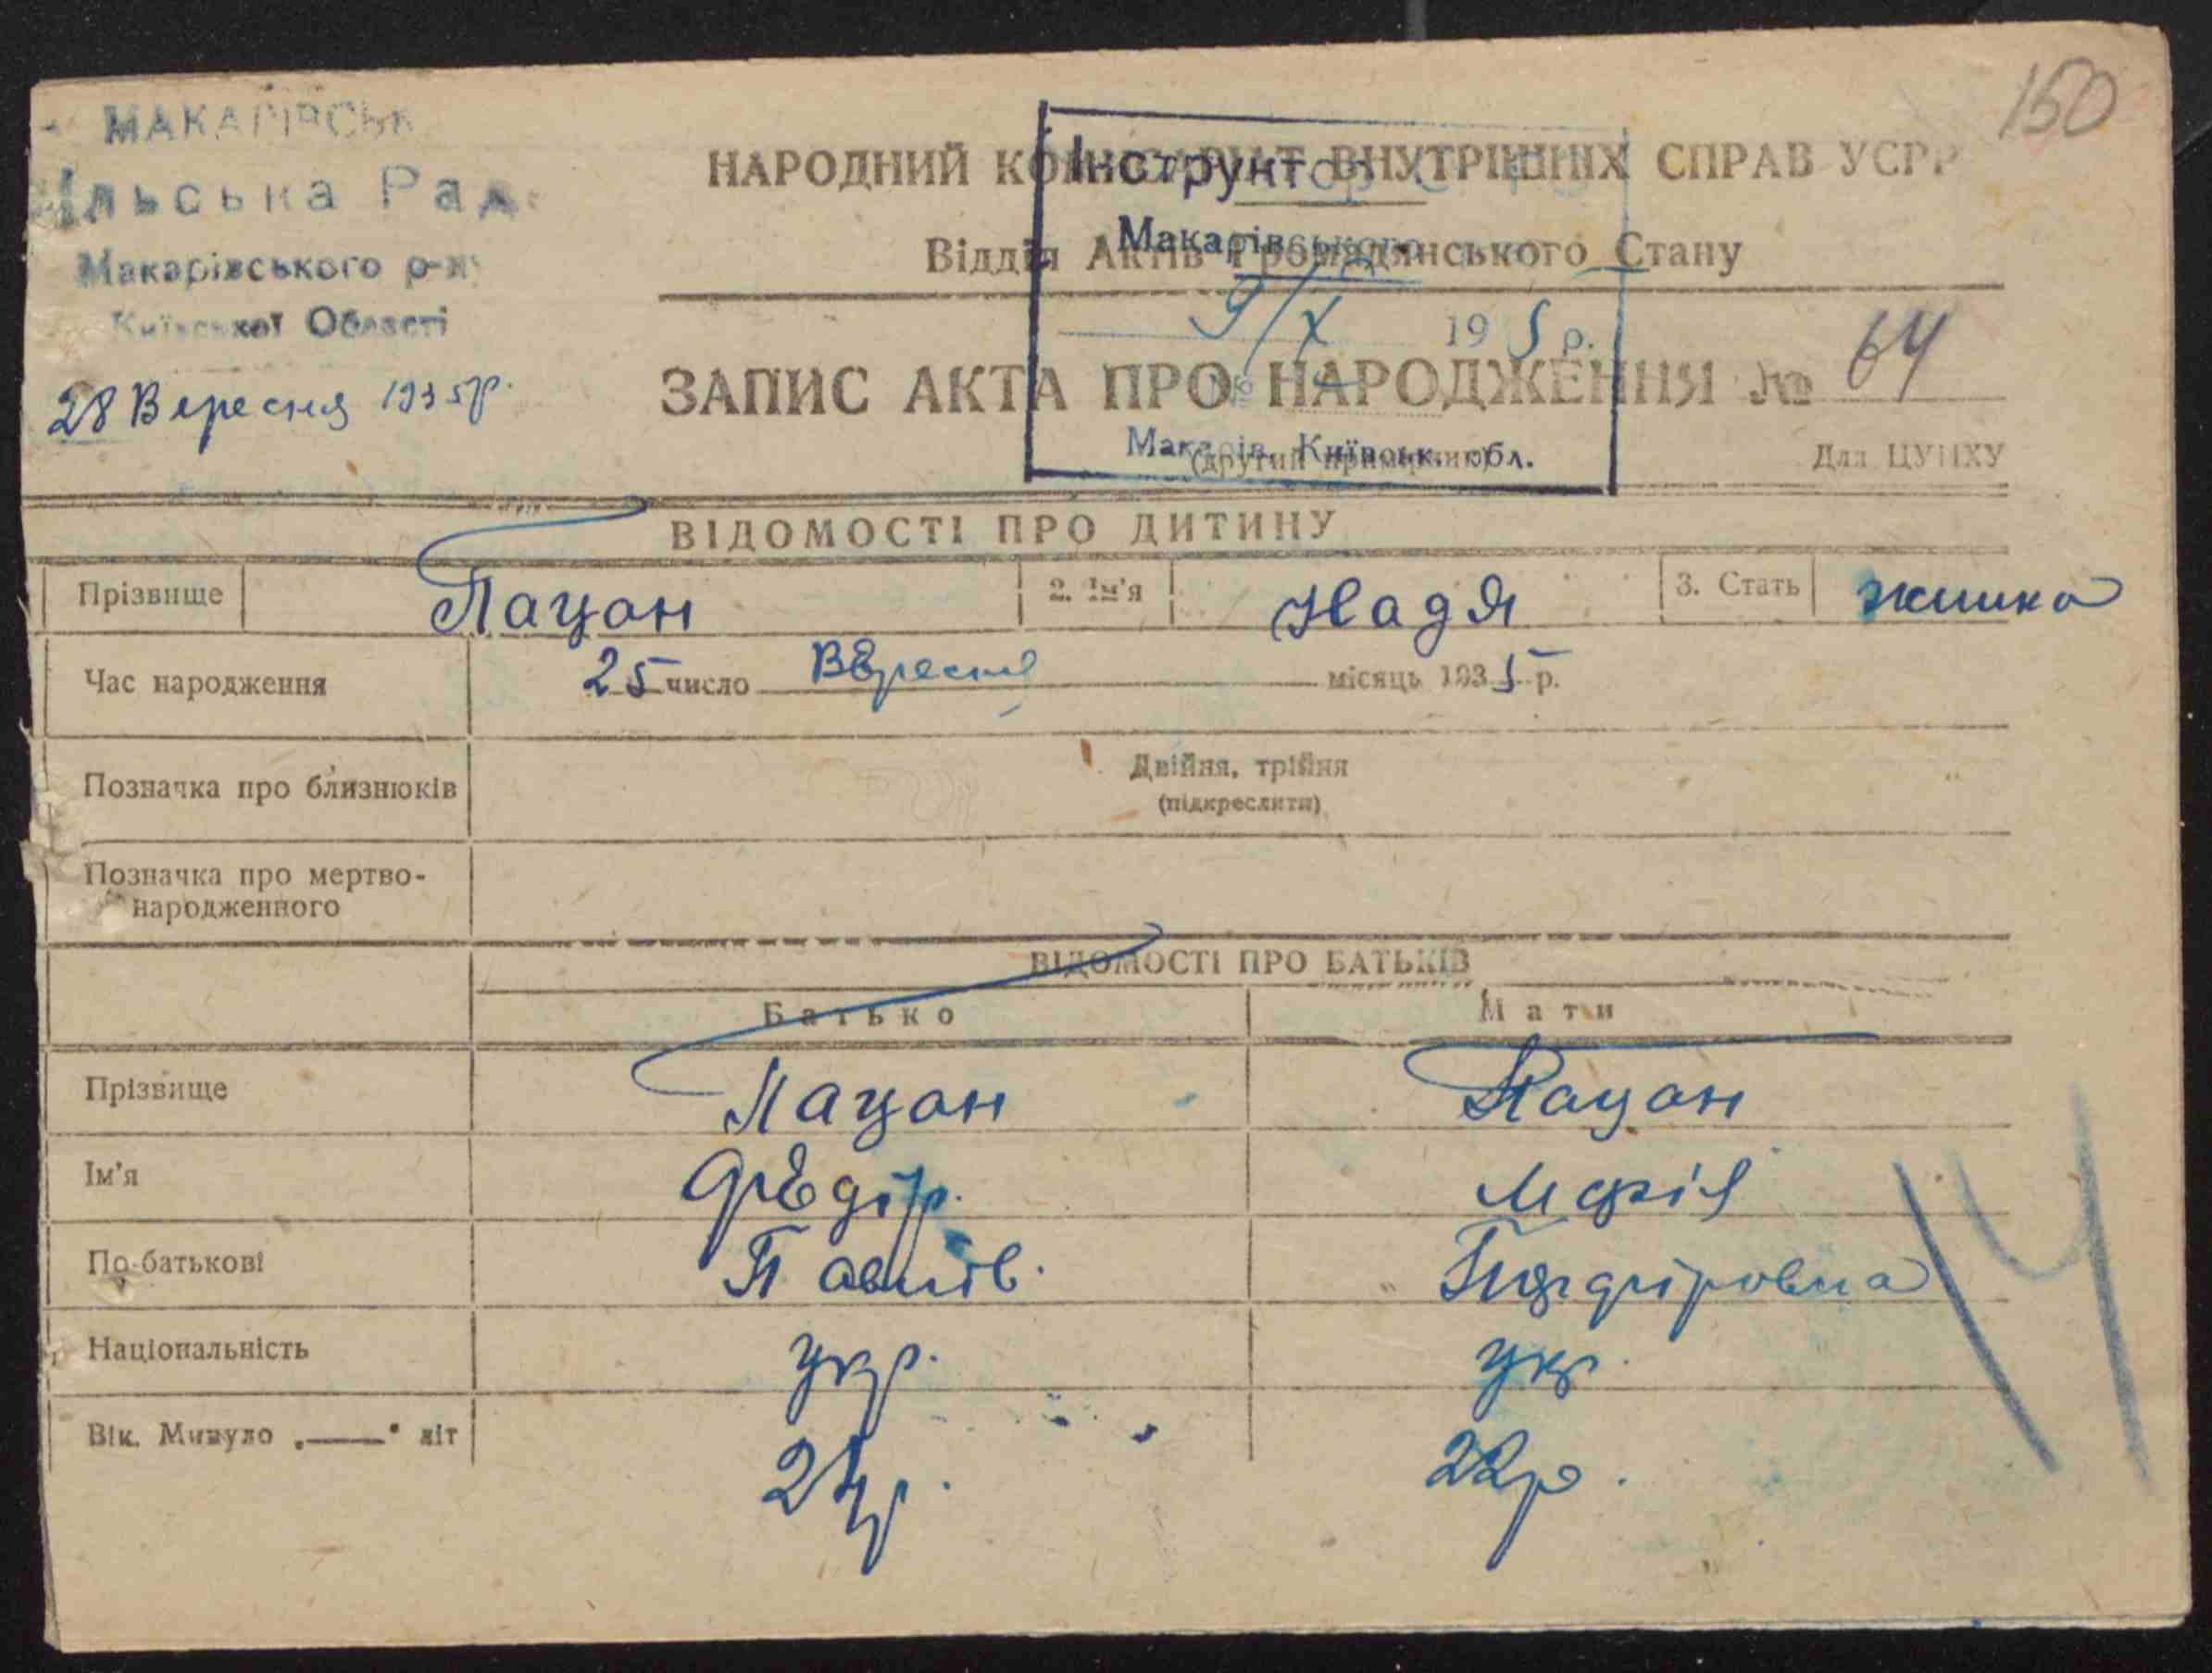 150
МАКАРІВСЬК
ільська Рада
Макарівського р-ну
Київської Області
28 Вересня 1935р.
НАРОДНИЙ КОМІСАРІАТ ВНУТРІШНІХ СПРАВ УСРР
Відділ Актів Громадянського Стану
Інструктор
Макарівського
9/X 195р.
Макарів, Київськ. обл.
ЗАПИС АКТА ПРО НАРОДЖЕННЯ № 64
(другий примірник)
Для ЦУНХУ
ВІДОМОСТІ ПРО ДИТИНУ
Прізвище Пацан 2. Ім'я Надя 3. Стать жинка
Час народження 25 число Вересня місяць 1935 р.
Позначка про близнюків Двійня, трійня
(підкреслити)
Позначка про мертво-
народженного
ВІДОМОСТІ ПРО БАТЬКІВ
Батько Мати
Прізвище Пацан Пацан
Ім'я Федір. Марія
По-батькові Павлів.
Національність укр. укр.
Вік. Минуло „——" літ 24р. 22р.
14